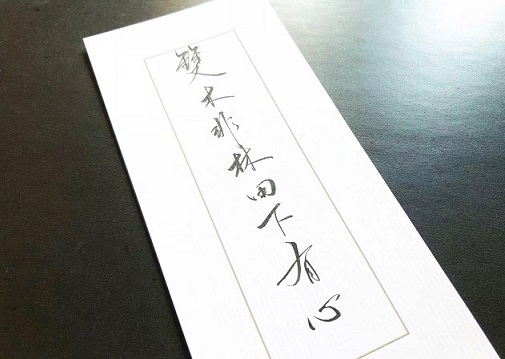 雙木非林田下有心